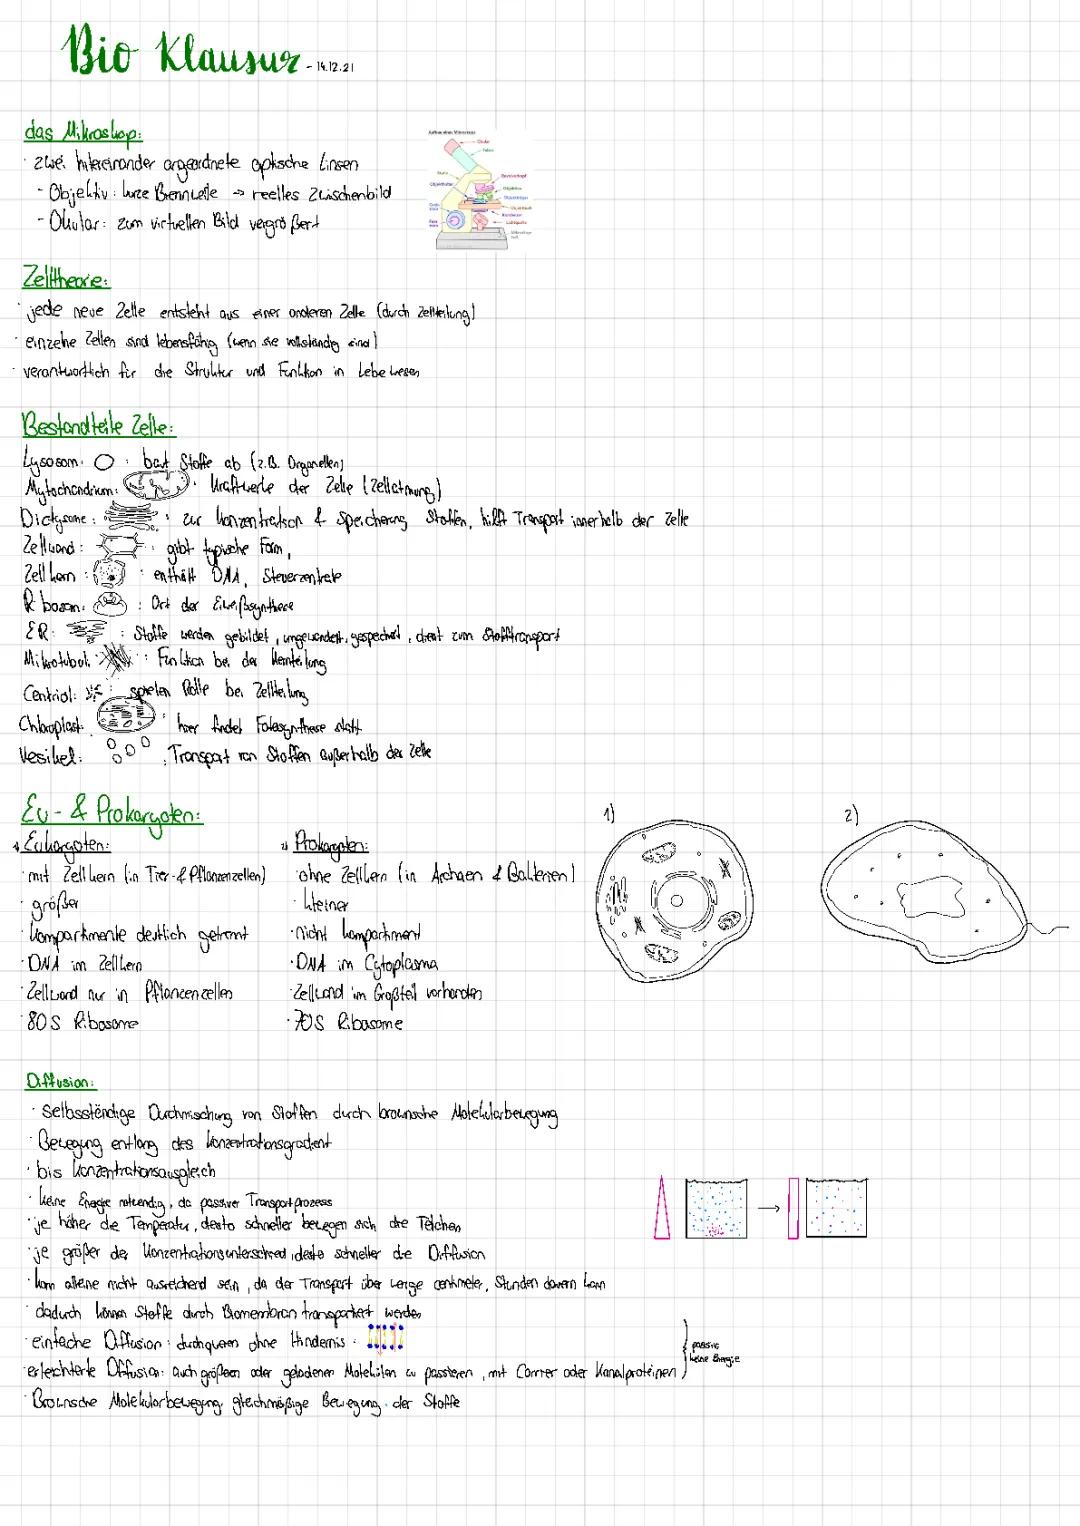 Bio Klausur - 14.12.21
das Mikroskop:
· zwei hintereinander angeordnete optische Linsen
- Objektiv: kurze Brennweite → reelles Zwischenbild
- Okular: zum virtuellen Bild vergrößert
Aufbau eines Mikroskops
Okular
Tubus
Stativ
Revolverkopf
Objekthalter
Objektive
Objektträger
Objekttisch
Kondensor
Lichtquelle
Zelltheorie:
· jede neue Zelle entsteht aus einer anderen Zelle (durch Zellteilung)
· einzelne Zellen sind lebensfähig (wenn sie vollständig sind)
· verantwortlich für die Struktur und Funktion in Lebewesen
Bestandteile Zelle:
Lysosom: : baut Stoffe ab (z.B. Organellen)
Mytochondrium: : Kraftwerke der Zelle (Zellatmung)
Dictysome: : zur Konzentration & Speicherung Stoffen, hilft Transport innerhalb der Zelle
Zellwand: : gibt typische Form,
Zellkern: : enthält DNA, Steuerzentrale
Ribosom: : Ort der Eiweißsynthese
ER: : Stoffe werden gebildet, umgewandelt, gespeichert, dient zum Stofftransport
Mikrotubuli: : Funktion bei der Kernteilung
Centriol: : spielen Rolle bei Zellteilung
Chloroplast: : hier findet Fotosynthese statt
Vesikel: : Transport von Stoffen außerhalb der Zelle
Eu- & Prokaryoten:
1) Eukaryoten:
· mit Zellkern (in Tier- & Pflanzenzellen)
· größer
· Kompartimente deutlich getrennt
· DNA im Zellkern
· Zellwand nur in Pflanzenzellen
· 80S Ribosome
2) Prokaryoten:
· ohne Zellkern (in Archaen & Bakterien)
· kleiner
· nicht kompartiment
· DNA im Cytoplasma
· Zellwand im Großteil vorhanden
· 70S Ribosome
1)
2)
Diffusion:
· Selbsständige Durchmischung von Stoffen durch brownsche Molekularbewegung
· Bewegung entlang des Konzentrationsgradient
· bis Konzentrationsausgleich
· keine Energie notwendig, da passiver Transportprozess
· je höher die Temperatur, desto schneller bewegen sich die Teilchen
· je größer der Konzentrationsunterschied, desto schneller die Diffusion
· kann alleine nicht ausreichend sein, da der Transport über wenige centimeter, Stunden dauern kann
· dadurch können Stoffe durch Biomembran transportiert werden
· einfache Diffusion: durchqueren ohne Hindernis
· erleichterte Diffusion: auch größeren oder geladenen Molekülen zu passieren, mit Carrier oder Kanalproteinen
passive
keine Energie
· Brownsche Molekularbewegung: gleichmäßige Bewegung der Stoffe